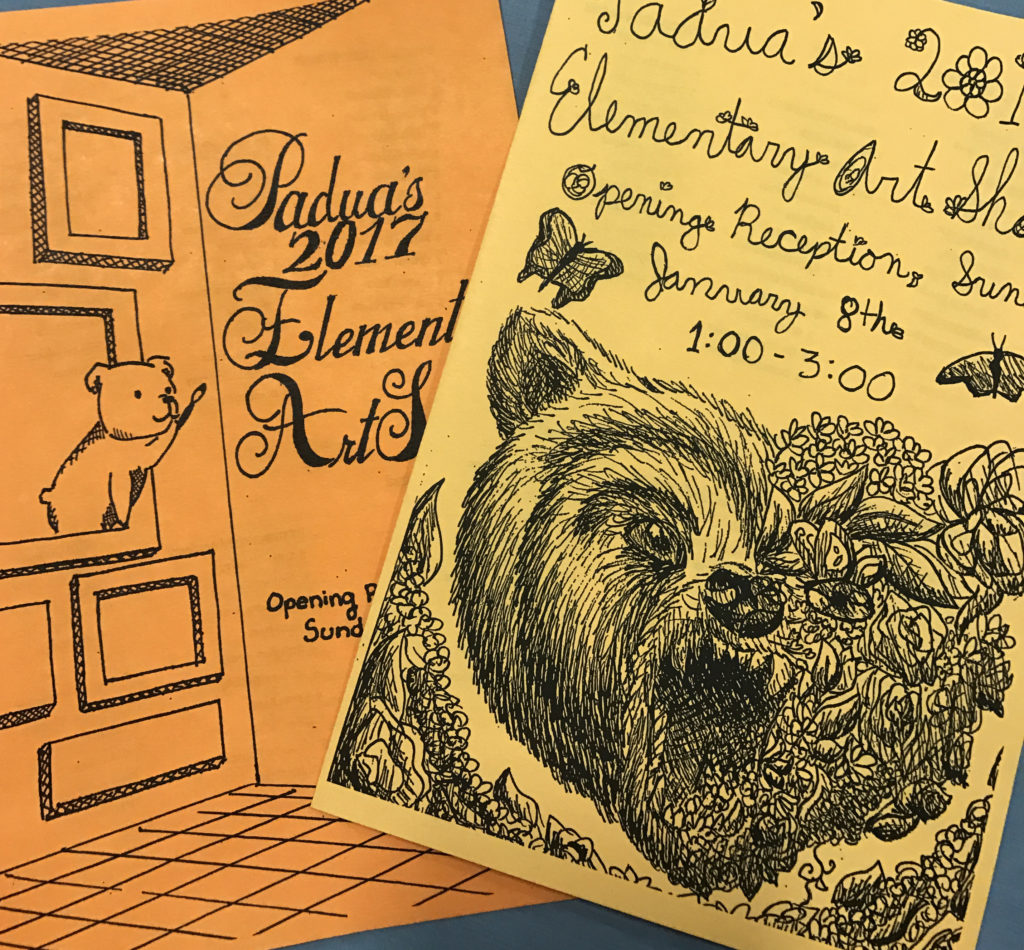 Padua's
2017
Element
Art S
Opening
Sund
Padua's 201
Elementary Art Sho
Opening Reception, Sun
January 8th
1:00 - 3:00